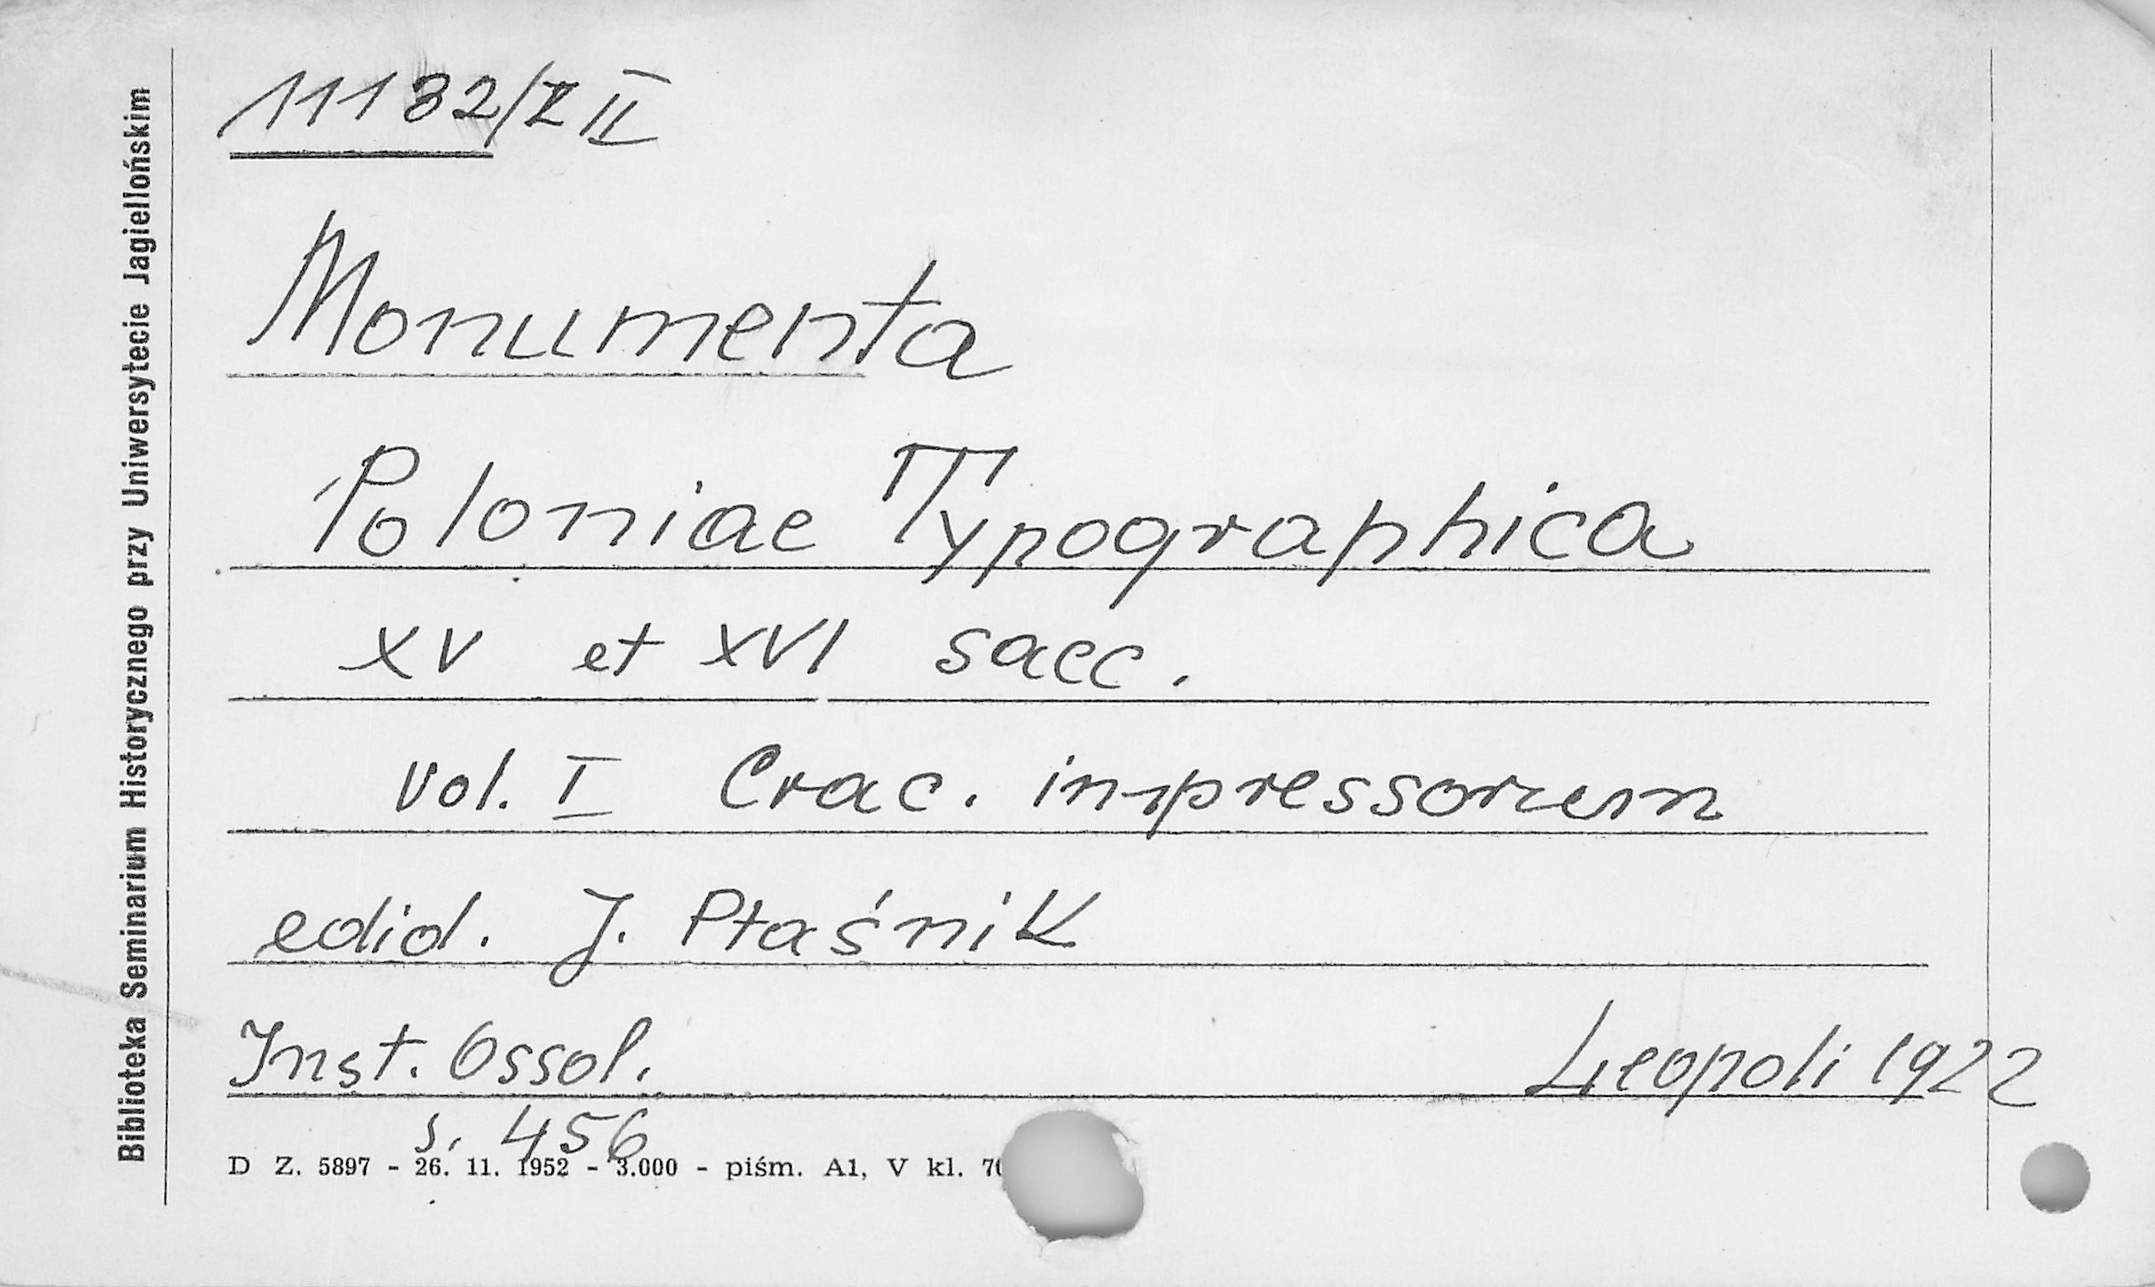 11182/Z II
Monumenta
Poloniae Typographica
XV et XVI saec.
vol. I Crac. impressorum
edid. J. Ptaśnik
Inst. Ossol. Leopoli 1922
s. 456
D Z. 5897 - 26. 11. 1952 - 3.000 - piśm. A1, V kl. 70
Biblioteka Seminarium Historycznego przy Uniwersytecie Jagiellońskim